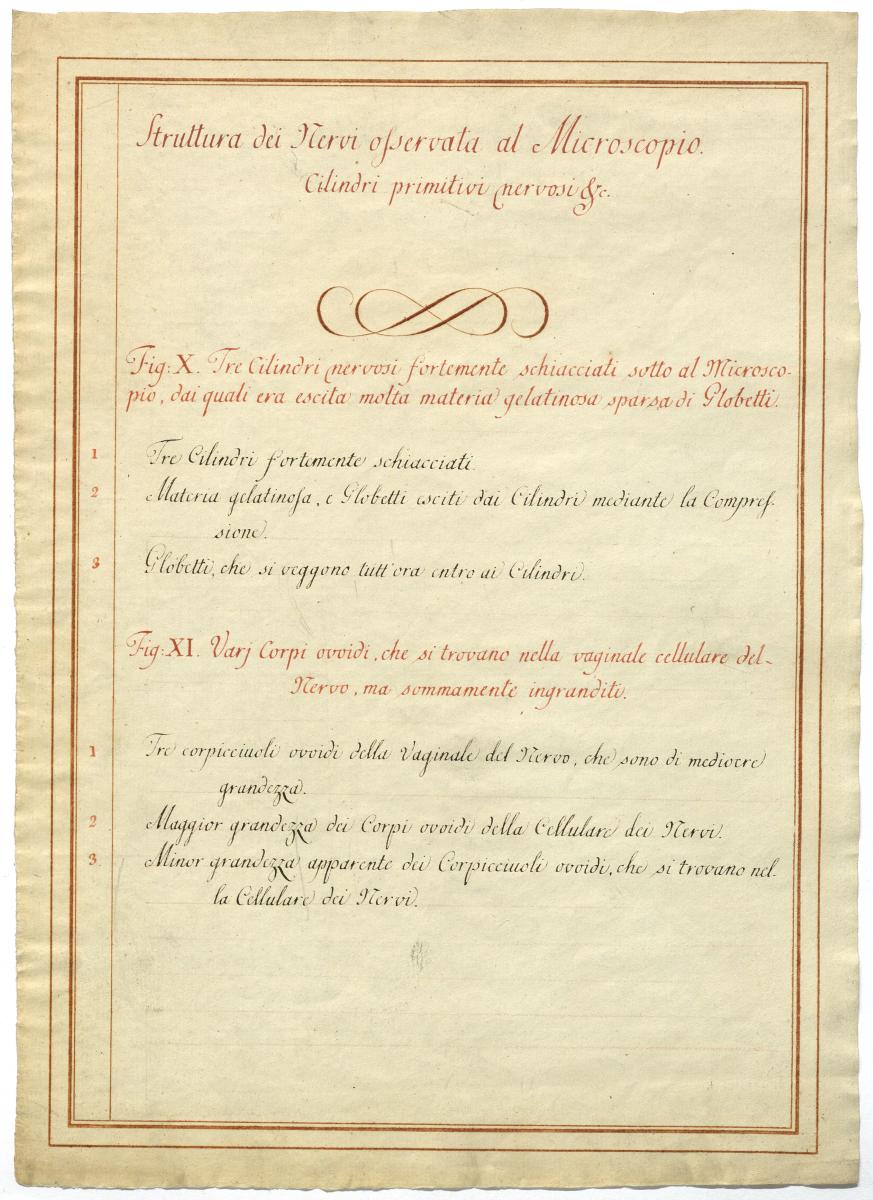 Struttura dei Nervi oſservata al Microscopio.
Cilindri primitivi nervosi &c.
Fig: X. Tre Cilindri nervosi fortemente schiacciati sotto al Microsco-
pio, dai quali era escita molta materia gelatinosa sparsa di Globetti.
1 Tre Cilindri fortemente schiacciati.
2 Materia gelatinoſa, e Globetti esciti dai Cilindri mediante la Compreſ-
sione.
3 Globetti, che si veggono tutt'ora entro ai Cilindri.
Fig: XI. Varj Corpi ovoidi, che si trovano nella vaginale cellulare del
Nervo, ma sommamente ingranditi.
1 Tre corpicciuoli ovoidi della Vaginale del Nervo, che sono di mediocre
grandezza.
2 Maggior grandezza dei Corpi ovoidi della Cellulare dei Nervi.
3. Minor grandezza apparente dei Corpicciuoli ovoidi, che si trovano nel-
la Cellulare dei Nervi.